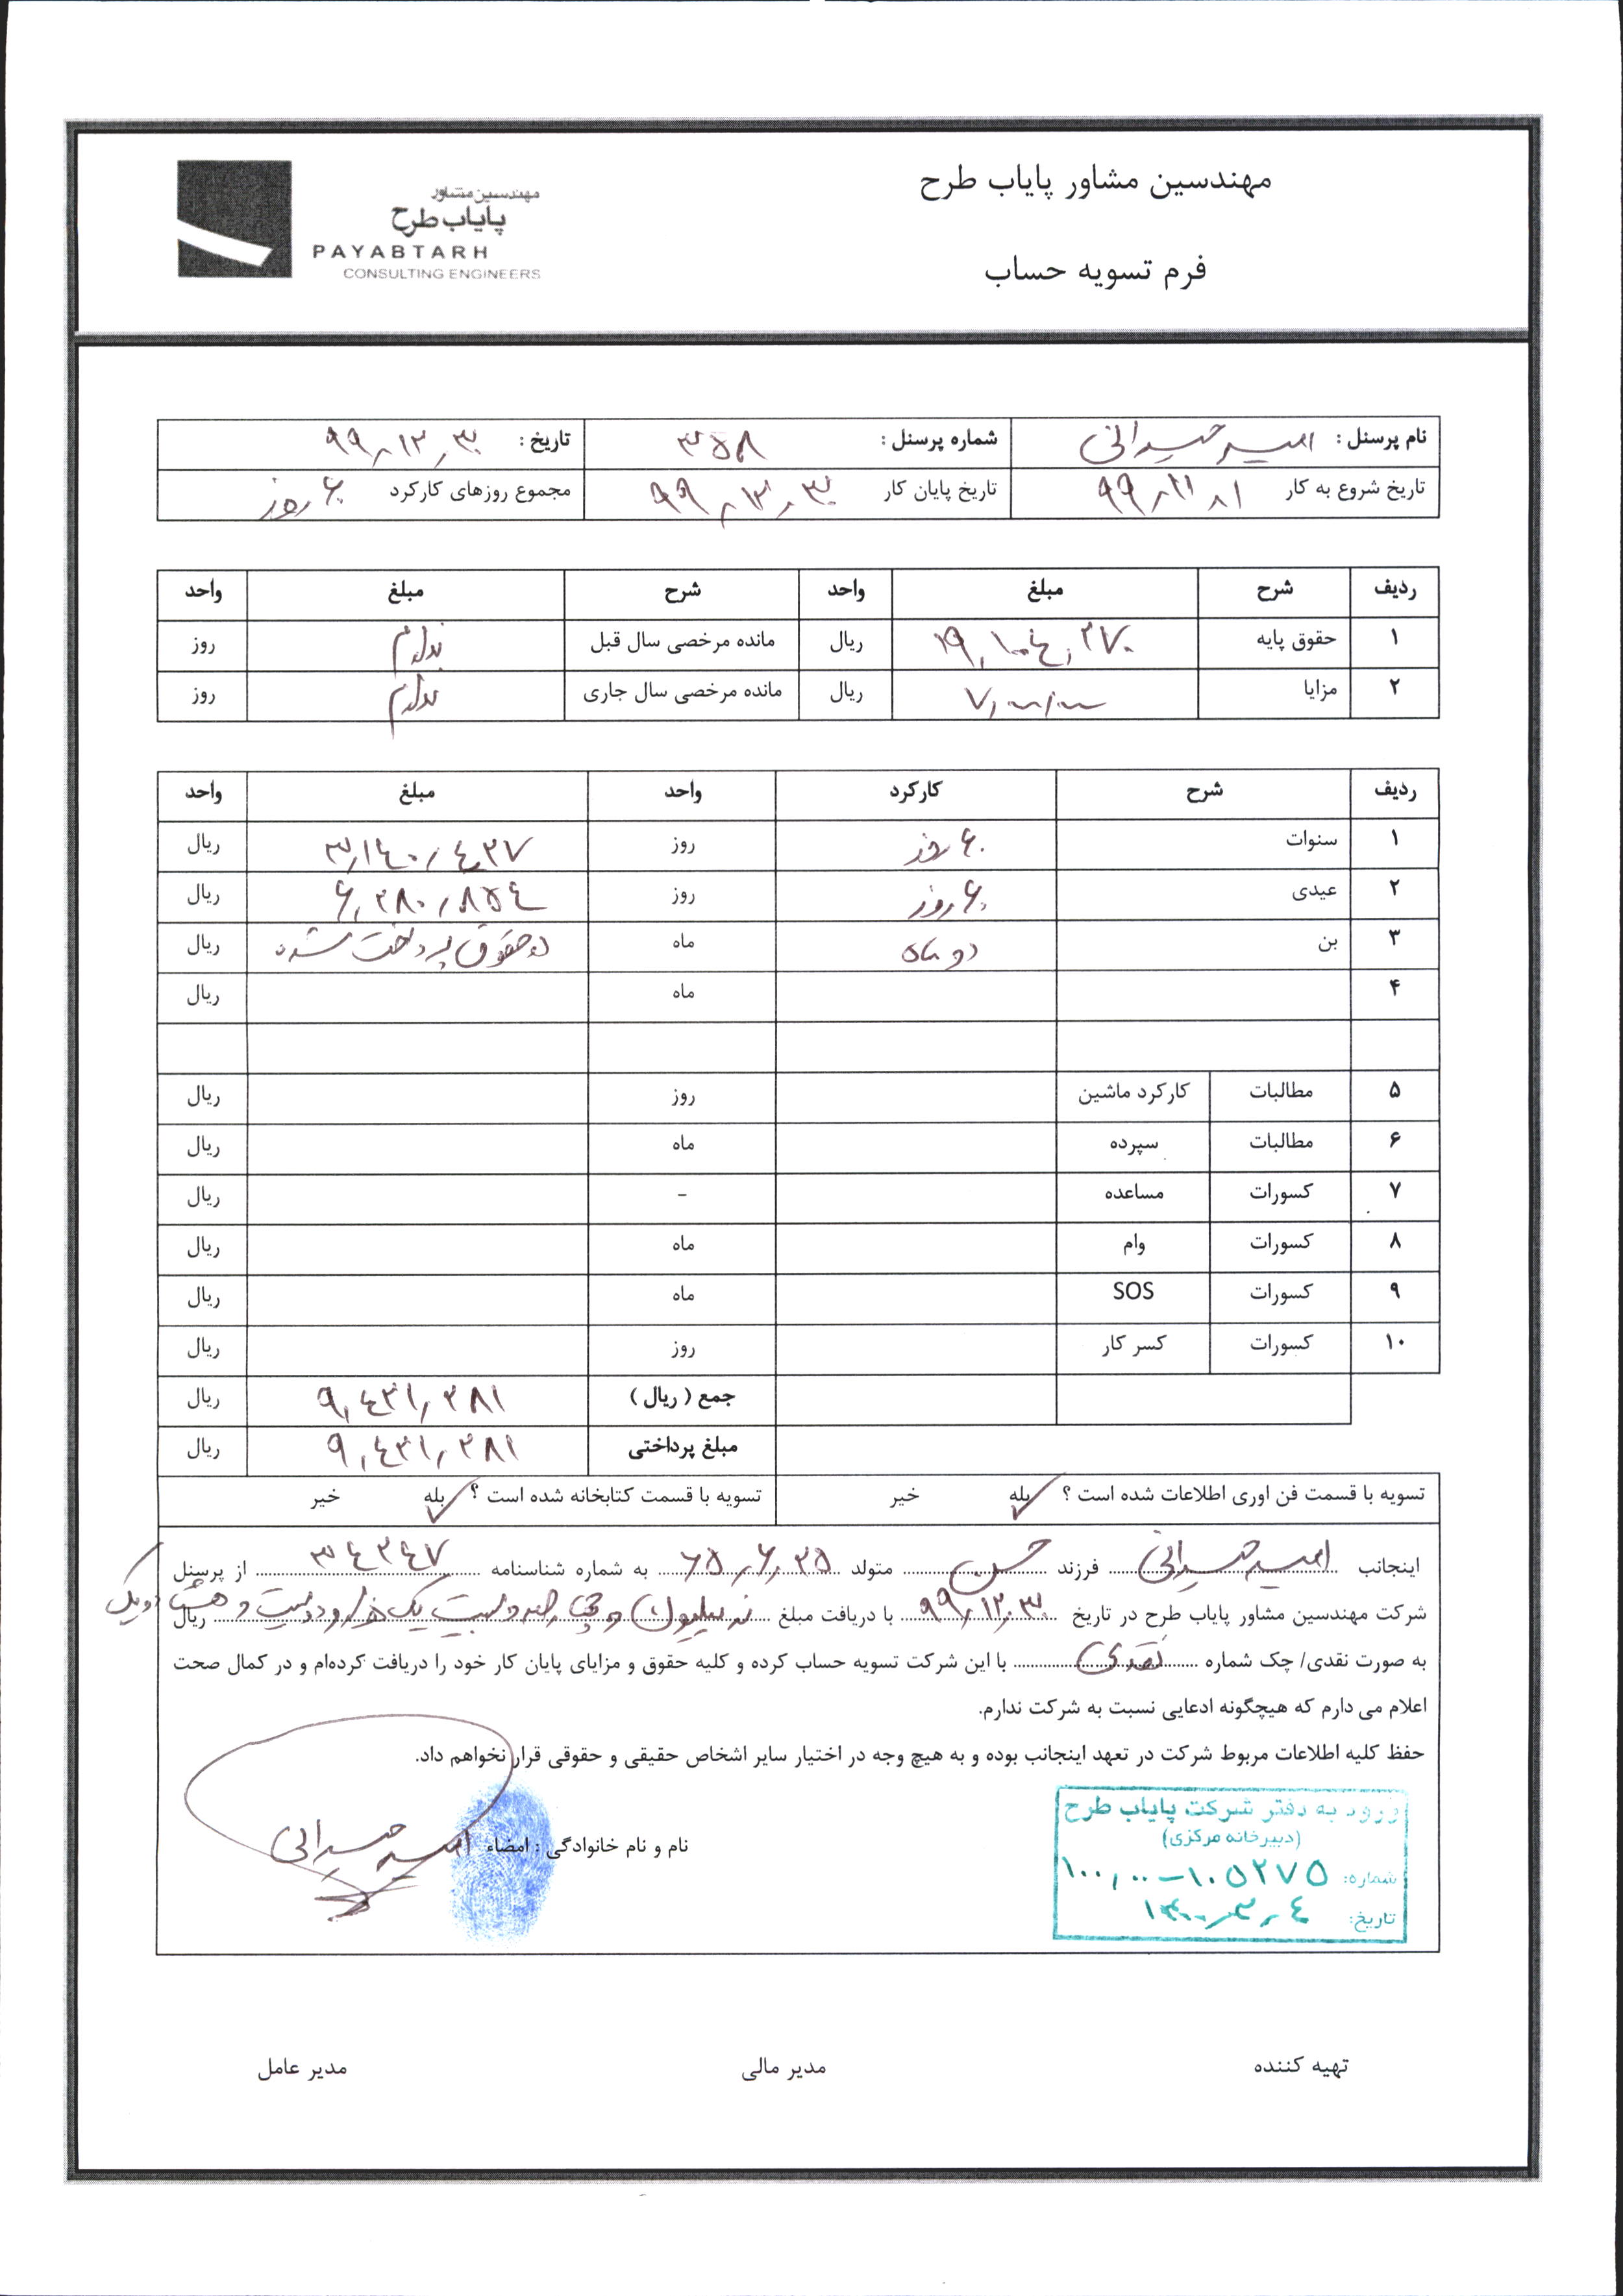 مهندسین مشاور پایاب طرح
فرم تسویه حساب
مهندسین مشاور
پایاب طرح
PAYABTARH
CONSULTING ENGINEERS
نام پرسنل : امیر حیدرانی شماره پرسنل : ۳۵۸ تاریخ : ۹۹٫۱۲٫۳۰
تاریخ شروع به کار ۹۹٫۱۱٫۱ تاریخ پایان کار ۹۹٫۱۲٫۳۰ مجموع روزهای کارکرد ۶۰ روز
ردیف شرح مبلغ واحد شرح مبلغ واحد
۱ حقوق پایه ۱۹,۱۰۴,۳۲۷ ریال مانده مرخصی سال قبل ندارم روز
۲ مزایا ۷,۰۰۰,۰۰۰ ریال مانده مرخصی سال جاری ندارم روز
ردیف شرح کارکرد واحد مبلغ واحد
۱ سنوات ۶۰ روز روز ۳,۱۴۰,۴۲۷ ریال
۲ عیدی ۶۰ روز روز ۶,۲۸۰,۸۵۴ ریال
۳ بن دو ماه ماه در حقوق پرداخت شده ریال
۴ ماه ریال
۵ مطالبات کارکرد ماشین روز ریال
۶ مطالبات سپرده ماه ریال
۷ کسورات مساعده - ریال
۸ کسورات وام ماه ریال
۹ کسورات SOS ماه ریال
۱۰ کسورات کسر کار روز ریال
جمع ( ریال ) ۹,۴۲۱,۲۸۱ ریال
مبلغ پرداختی ۹,۴۲۱,۲۸۱ ریال
تسویه با قسمت فن اوری اطلاعات شده است ؟ بله ✓ خیر تسویه با قسمت کتابخانه شده است ؟ بله ✓ خیر
اینجانب امیر حیدرانی فرزند حسن متولد ۶۵٫۶٫۲۵ به شماره شناسنامه ۳۴۲۴۷ از پرسنل
شرکت مهندسین مشاور پایاب طرح در تاریخ ۹۹٫۱۲٫۳۰ با دریافت مبلغ نه میلیون و چهارصد و بیست یک هزار و دویست و هشتاد و یک ریال
به صورت نقدی/ چک شماره نقدی با این شرکت تسویه حساب کرده و کلیه حقوق و مزایای پایان کار خود را دریافت کرده‌ام و در کمال صحت
اعلام می دارم که هیچگونه ادعایی نسبت به شرکت ندارم.
حفظ کلیه اطلاعات مربوط شرکت در تعهد اینجانب بوده و به هیچ وجه در اختیار سایر اشخاص حقیقی و حقوقی قرار نخواهم داد.
نام و نام خانوادگی : امضاء امیر حیدرانی
ورود به دفتر شرکت پایاب طرح
(دبیرخانه مرکزی)
شماره: ۱۰۰٫۰۰-۱۰۵۲۷۵
تاریخ: ۱۴۰۰٫۳٫۴
تهیه کننده مدیر مالی مدیر عامل